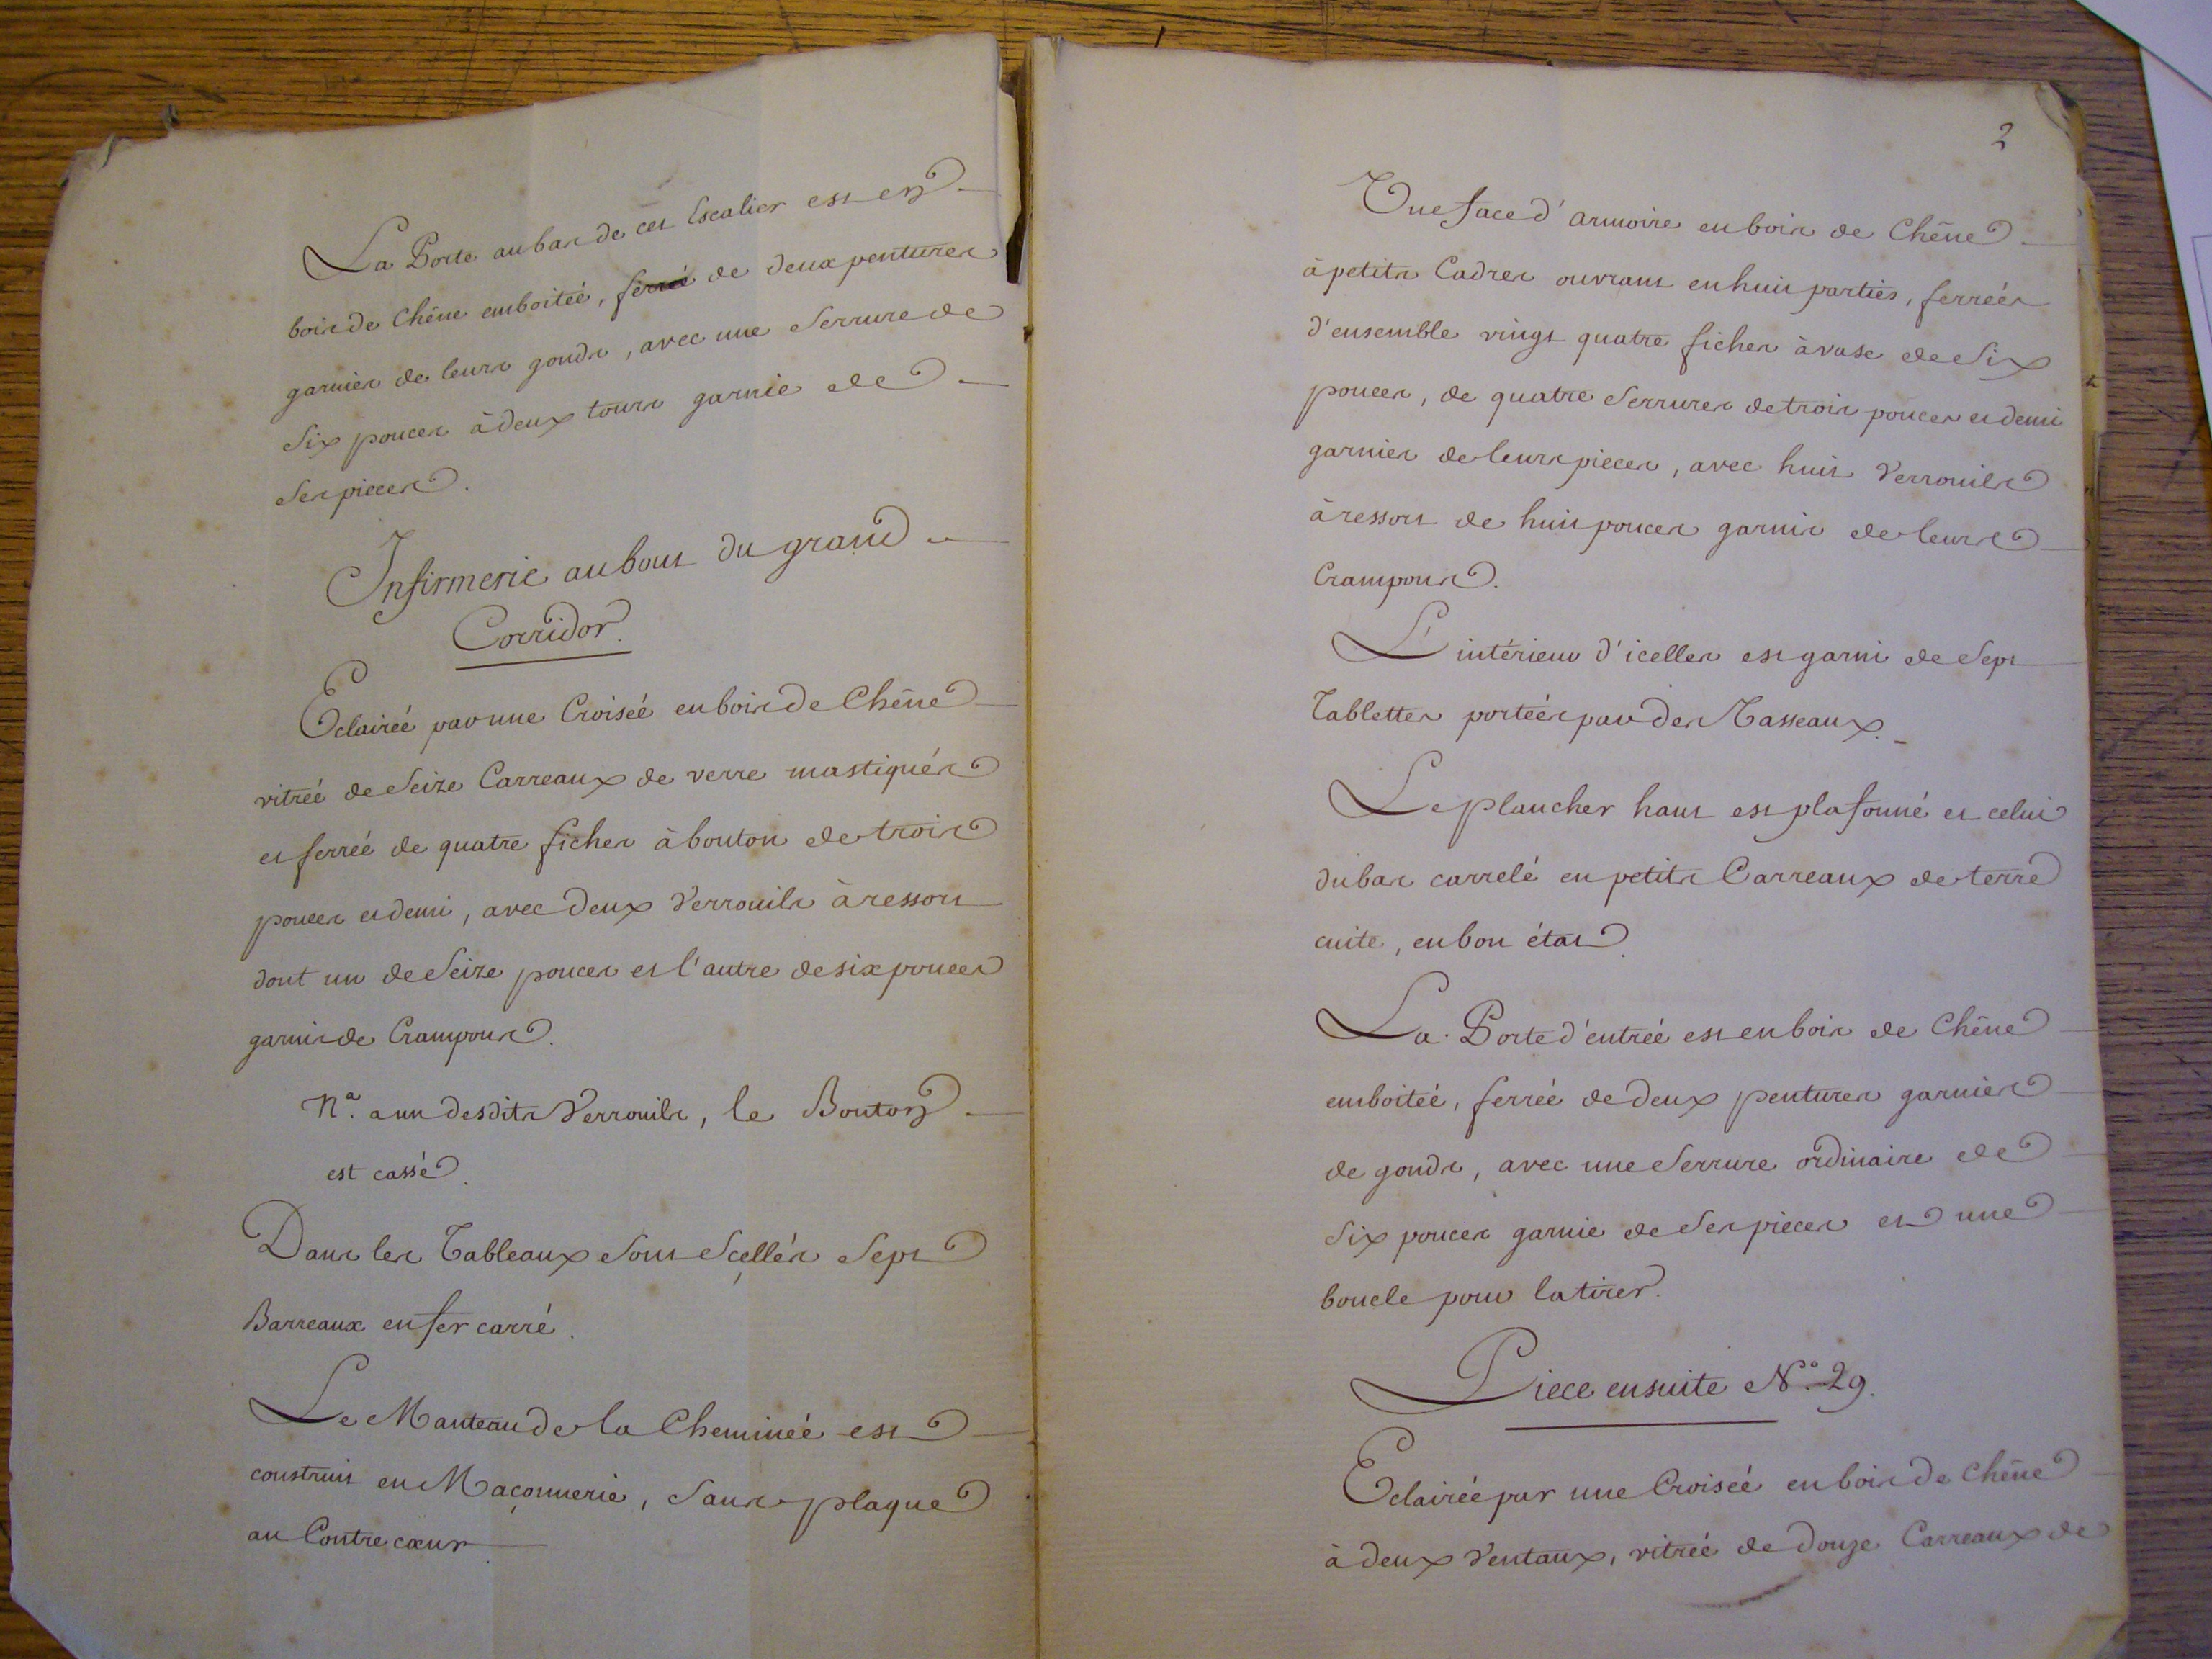 La Porte au bas de cet Escalier est en
bois de Chêne emboiteé, ferré de deux pentures
garnies de leurs gonds, avec une Serrure de
Six pouces à deux tours garnie de
Ses pieces.
Infirmerie au bout du grand
Corridor.
Eclaireé par une Croiseé en bois de Chêne
vitreé de Seize Carreaux de verre mastiqués
et ferreé de quatre fiches à bouton de trois
pouces et demi, avec deux Verrouils à ressort
dont un de Seize pouces et l'autre de six pouces
garnis de Crampons.
Nª. a un desdits Verrouils, le Bouton
est cassé.
Dans les Tableaux sont Scellés Sept
Barreaux en fer carré.
Le Manteau de la Chemineé est
construit en Maçonnerie, Sans plaque
au Contre cœur
2
Une face d'armoire en bois de Chêne
à petits Cadres ouvrant en huit parties, ferreés
d'ensemble vingt quatre fiches à vase de Six
pouces, de quatre Serrures de trois pouces et demi
garnies de leurs pieces, avec huit Verrouils
à ressort de huit pouces garnis de leurs
Crampons.
L'intérieur d'icelles est garni de Sept
Tablettes porteés par des Tasseaux.
Le plancher haut est plafonné et celui
du bas carrelé en petits Carreaux de terre
cuite, en bon état.
La Porte d'entreé est en bois de Chêne
emboiteé, ferreé de deux pentures garnies
de gonds, avec une Serrure ordinaire de
Six pouces garnie de Ses pieces et une
boucle pour la tirer.
Piece ensuite N.º 29.
Eclaireé par une Croiseé en bois de Chêne
à deux Ventaux, vitreé de douze Carreaux de